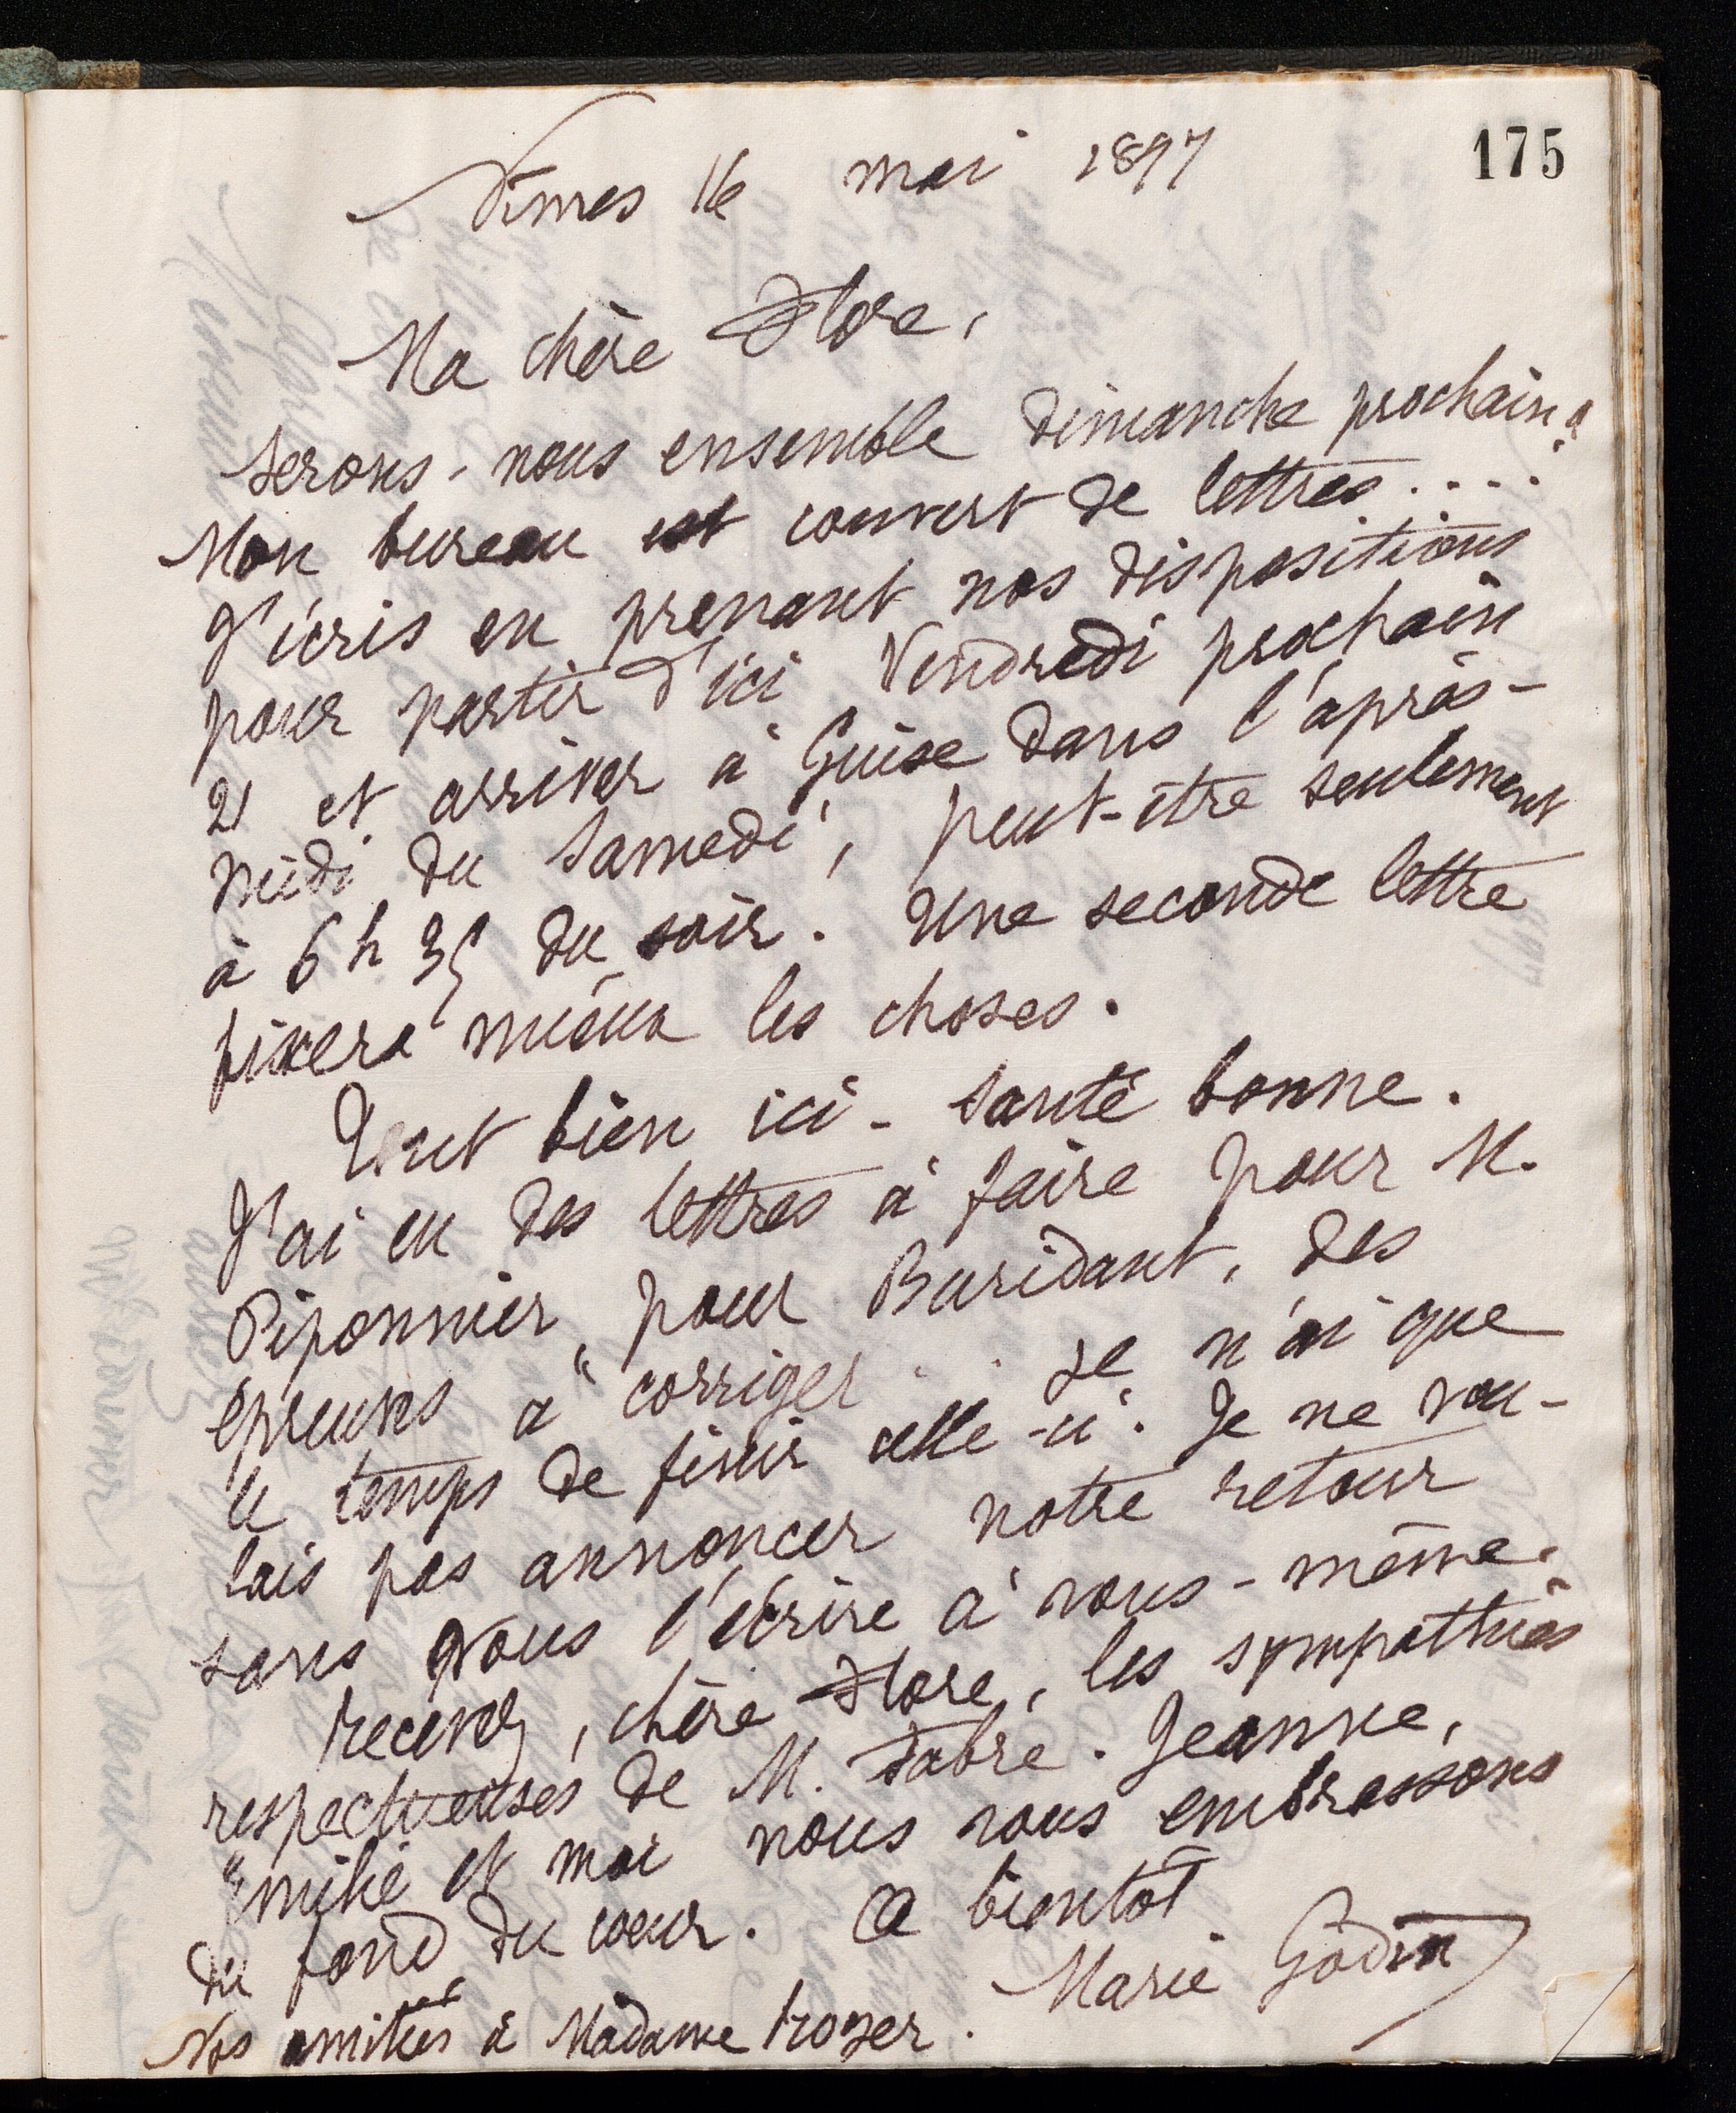 175
Nîmes 16 mai 1897
Ma chère Flore,
Serons-nous ensemble dimanche prochain ?
Mon bureau est couvert de lettres.....
J'écris en prenant nos dispositions
pour partir d'ici Vendredi prochain
21 et arriver à Guise dans l'après-
midi du Samedi, peut-être seulement
à 6 h 35 du soir. Une seconde lettre
fixera mieux les choses.
Tout bien ici - Santé bonne.
J'ai eu des lettres à faire pour M.
Piponnier, pour Buridant, des
épreuves à corriger.. Je n'ai que
le temps de finir celle-ci. Je ne vou-
lais pas annoncer notre retour
sans vous l'écrire à vous-même.
Recevez, chère Flore, les sympathies
respectueuses de M. Fabre. Jeanne,
Emilie et moi nous vous embrassons
du fond du coeur. A bientôt
Marie Godin
Nos amitiés à Madame Roger.